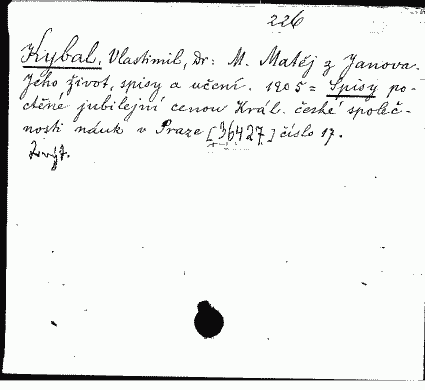 226
Kybal, Vlastimil, Dr: M. Matěj z Janova.
Jeho život, spisy a učení. 1905 = Spisy po-
ctěné jubilejní cenou Král. české společ-
nosti náuk v Praze [36427] číslo 17.